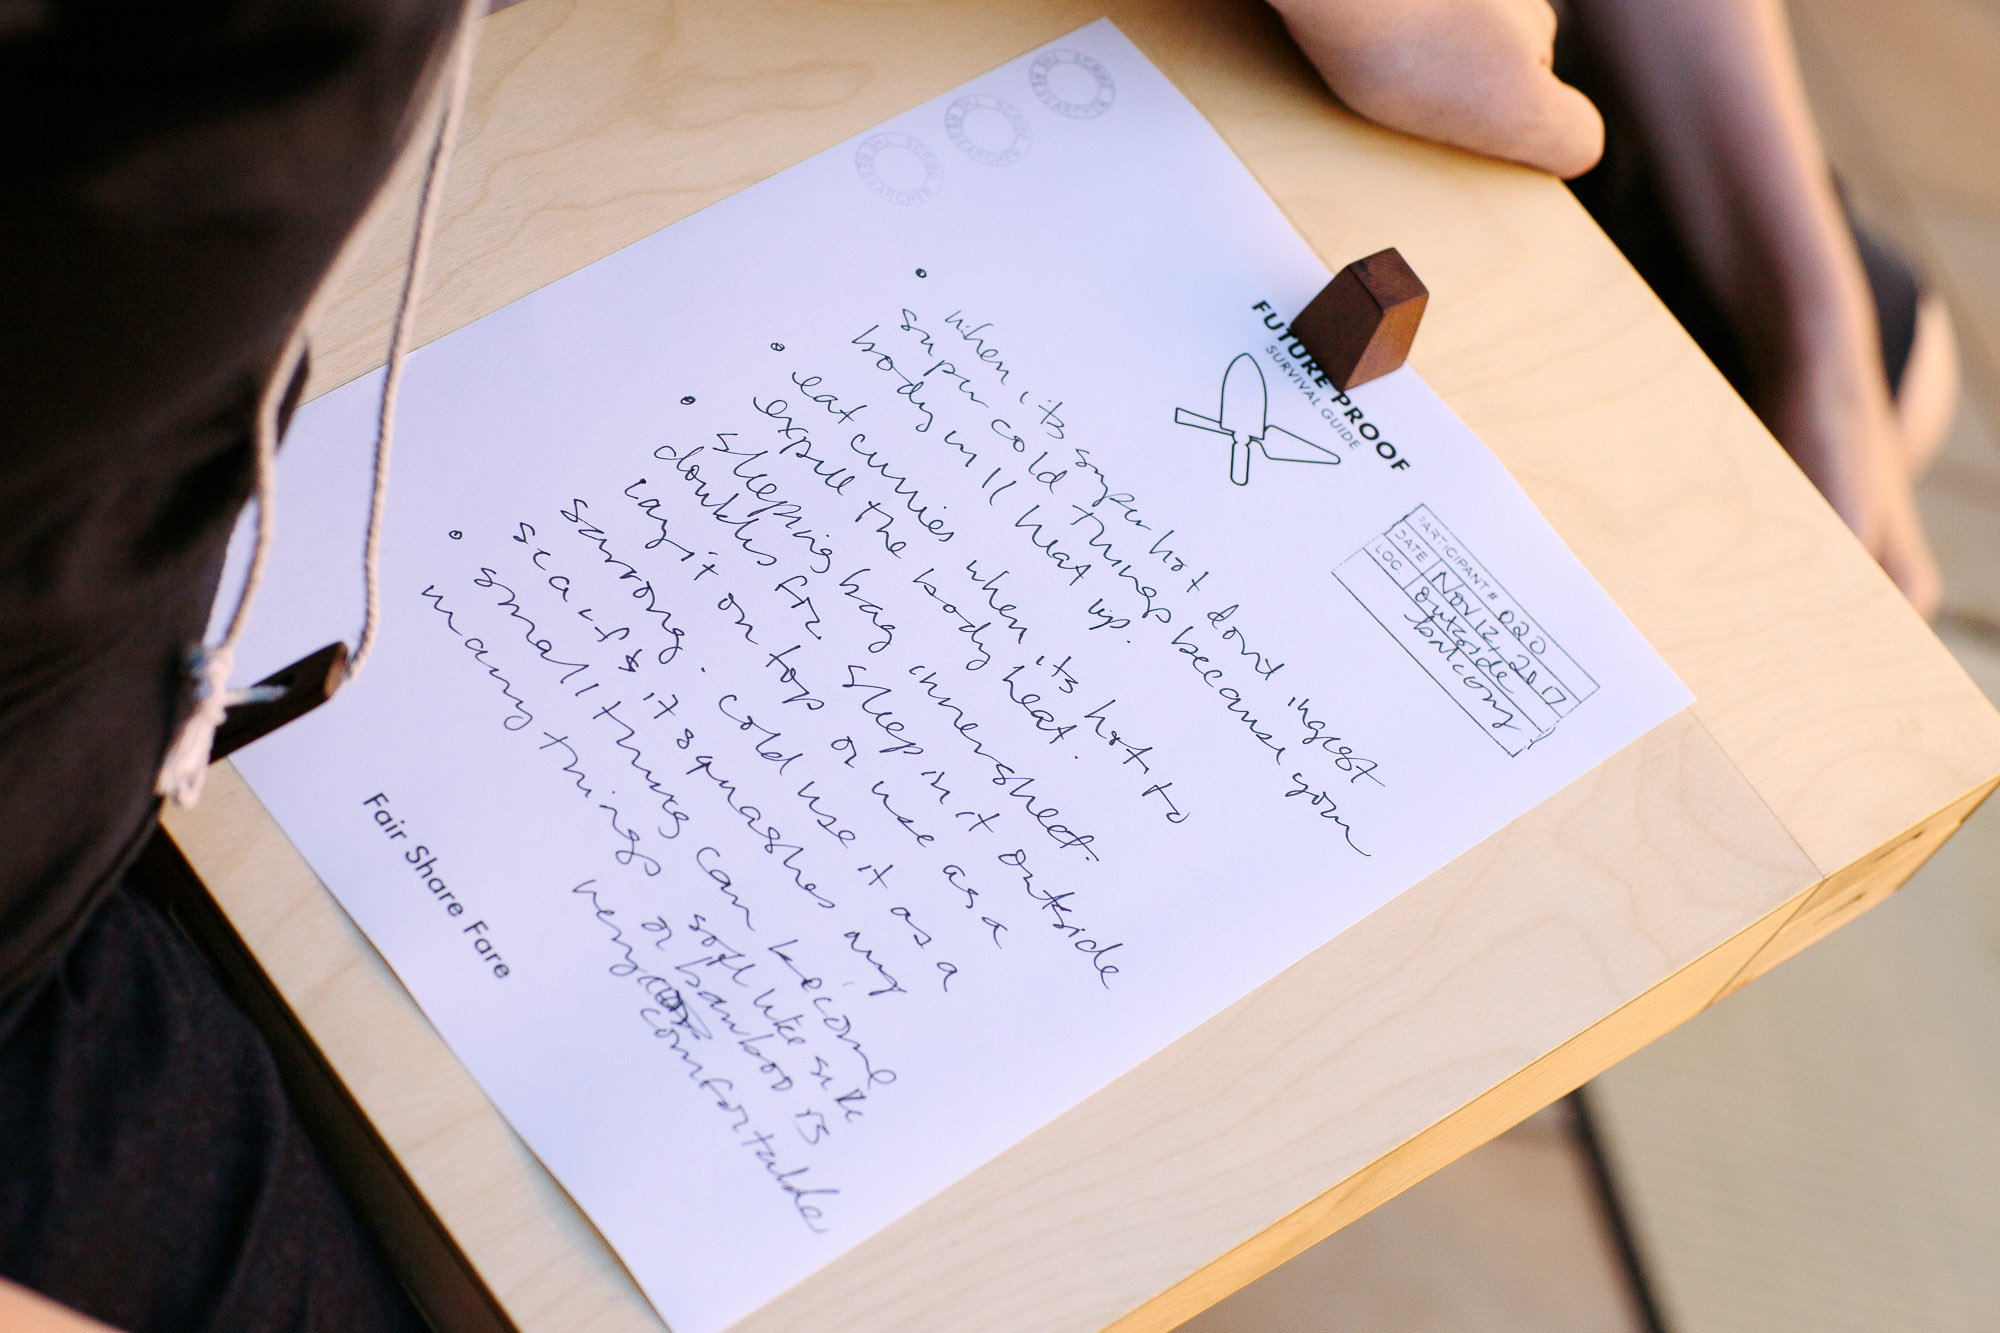 THE RESEARCHER SCRIBE
THE RESEARCHER SCRIBE
THE RESEARCHER SCRIBE
FUTURE PROOF
SURVIVAL GUIDE
PARTICIPANT # 020
DATE NOV 12, 2017
LOC outside
balcony
• when its super hot dont ingest
super cold things because your
body will heat up.
• eat curries when its hot to
expell the body heat.
• sleeping bag innersheet.
doubles for sleep in it outside
lay it on top or use as a
sarrong. cold use it as a
scarf & it squashes any
• small things can become
many things soft like silk
or bamboo is
very comfortable
Fair Share Fare